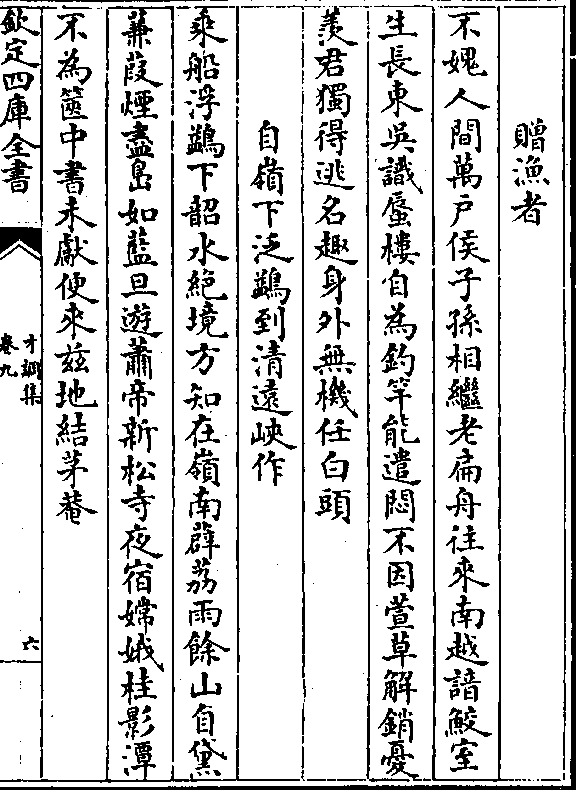 贈漁者
不媿人間萬戶侯子孫相繼老扁舟往來南越諳鮫室
生長東吳識蜃樓自為釣竿能遣悶不因萱草解銷憂
羨君獨得逃名趣身外無機任白頭
自嶺下泛鷁到清遠峽作
乘船浮鷁下韶水絕境方知在嶺南薜荔雨餘山自黛
蒹葭煙盡島如藍旦遊蕭帝新松寺夜宿嫦娥桂影潭
不為篋中書未獻便來茲地結茅菴
欽定四庫全書
才調集
卷九
六